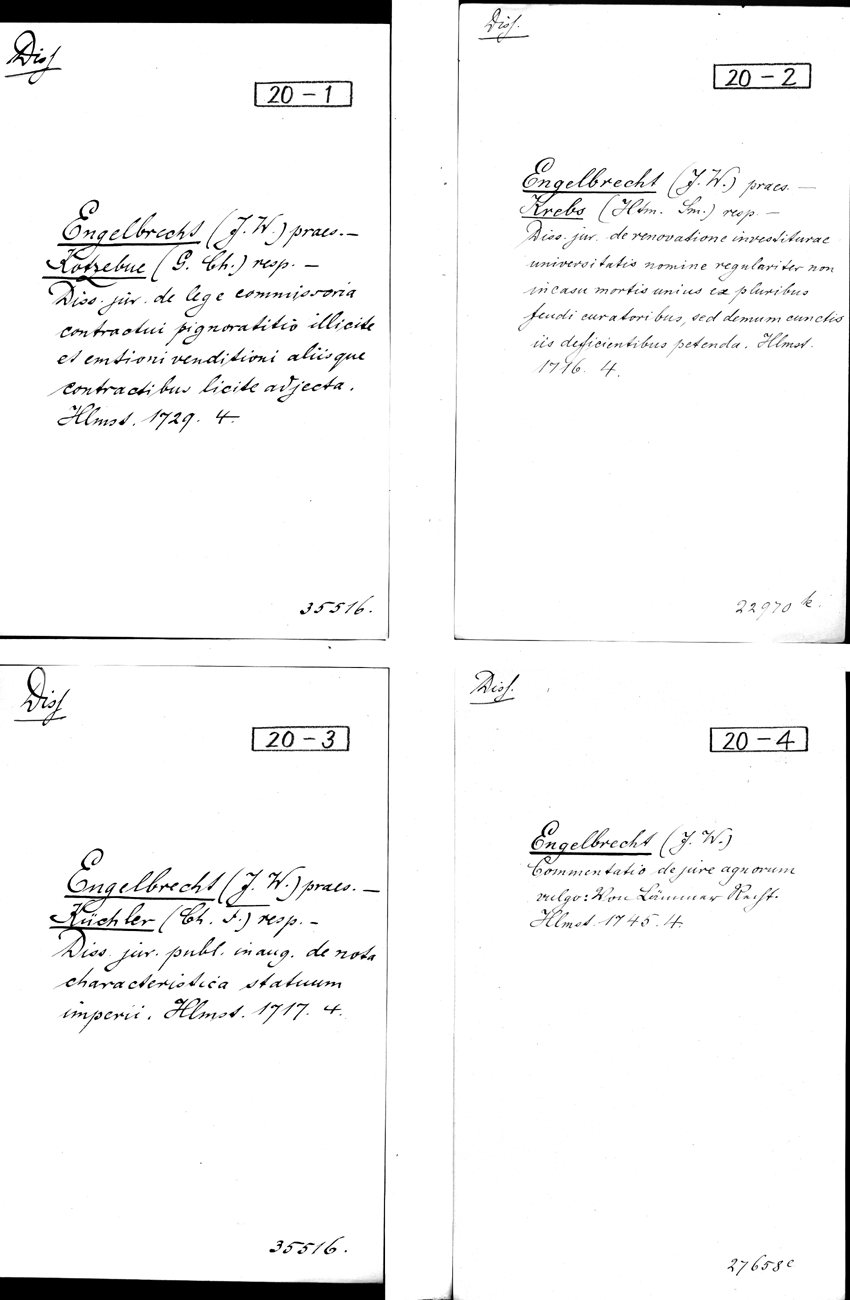 Diss
20 - 1
Engelbrecht (J. W.) praes. —
Kotzebue (G. Ch.) resp. —
Diss. jur. de lege commissoria
contractui pignoratitio illicite
et emtioni venditioni aliisque
contractibus licite adjecta.
Hlmst. 1729. 4.
35516.
Diss.
20 - 2
Engelbrecht (J. W.) praes. —
Krebs (Htm. Sm.) resp. —
Diss. jur. de renovatione investiturae
universitatis nomine regulariter non
in casu mortis unius ex pluribus
feudi curatoribus, sed demum cunctis
iis deficientibus petenda. Hlmst.
1716. 4.
22970 k.
Diss
20 - 3
Engelbrecht (J. W.) praes. —
Küchler (Ch. F.) resp. —
Diss. jur. publ. inaug. de nota
characteristica statuum
imperii. Hlmst. 1717. 4.
35516.
Diss.
20 - 4
Engelbrecht (J. W.)
Commentatio de jure agnorum
vulgo: Von Lämmer Recht.
Hlmst. 1745. 4.
27658c